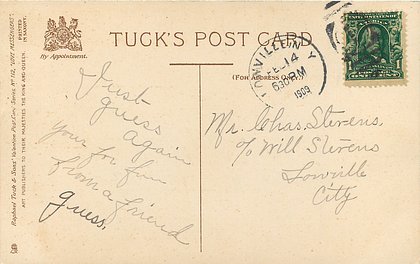 TUCK'S POST CARD
By Appointment.
(FOR ADDRESS ONLY)
LOWVILLE N Y
FEB 14
630 PM
1909
Just
guess
again
Your for fun
from a friend
Guess.
Mr. Chas. Stevens.
c/o Will Stevens
Lowville
City
Raphael Tuck & Sons' Valentine Post Card Series
ART PUBLISHERS TO THEIR MAJESTIES THE KING AND QUEEN
PRINTED
IN SAXONY